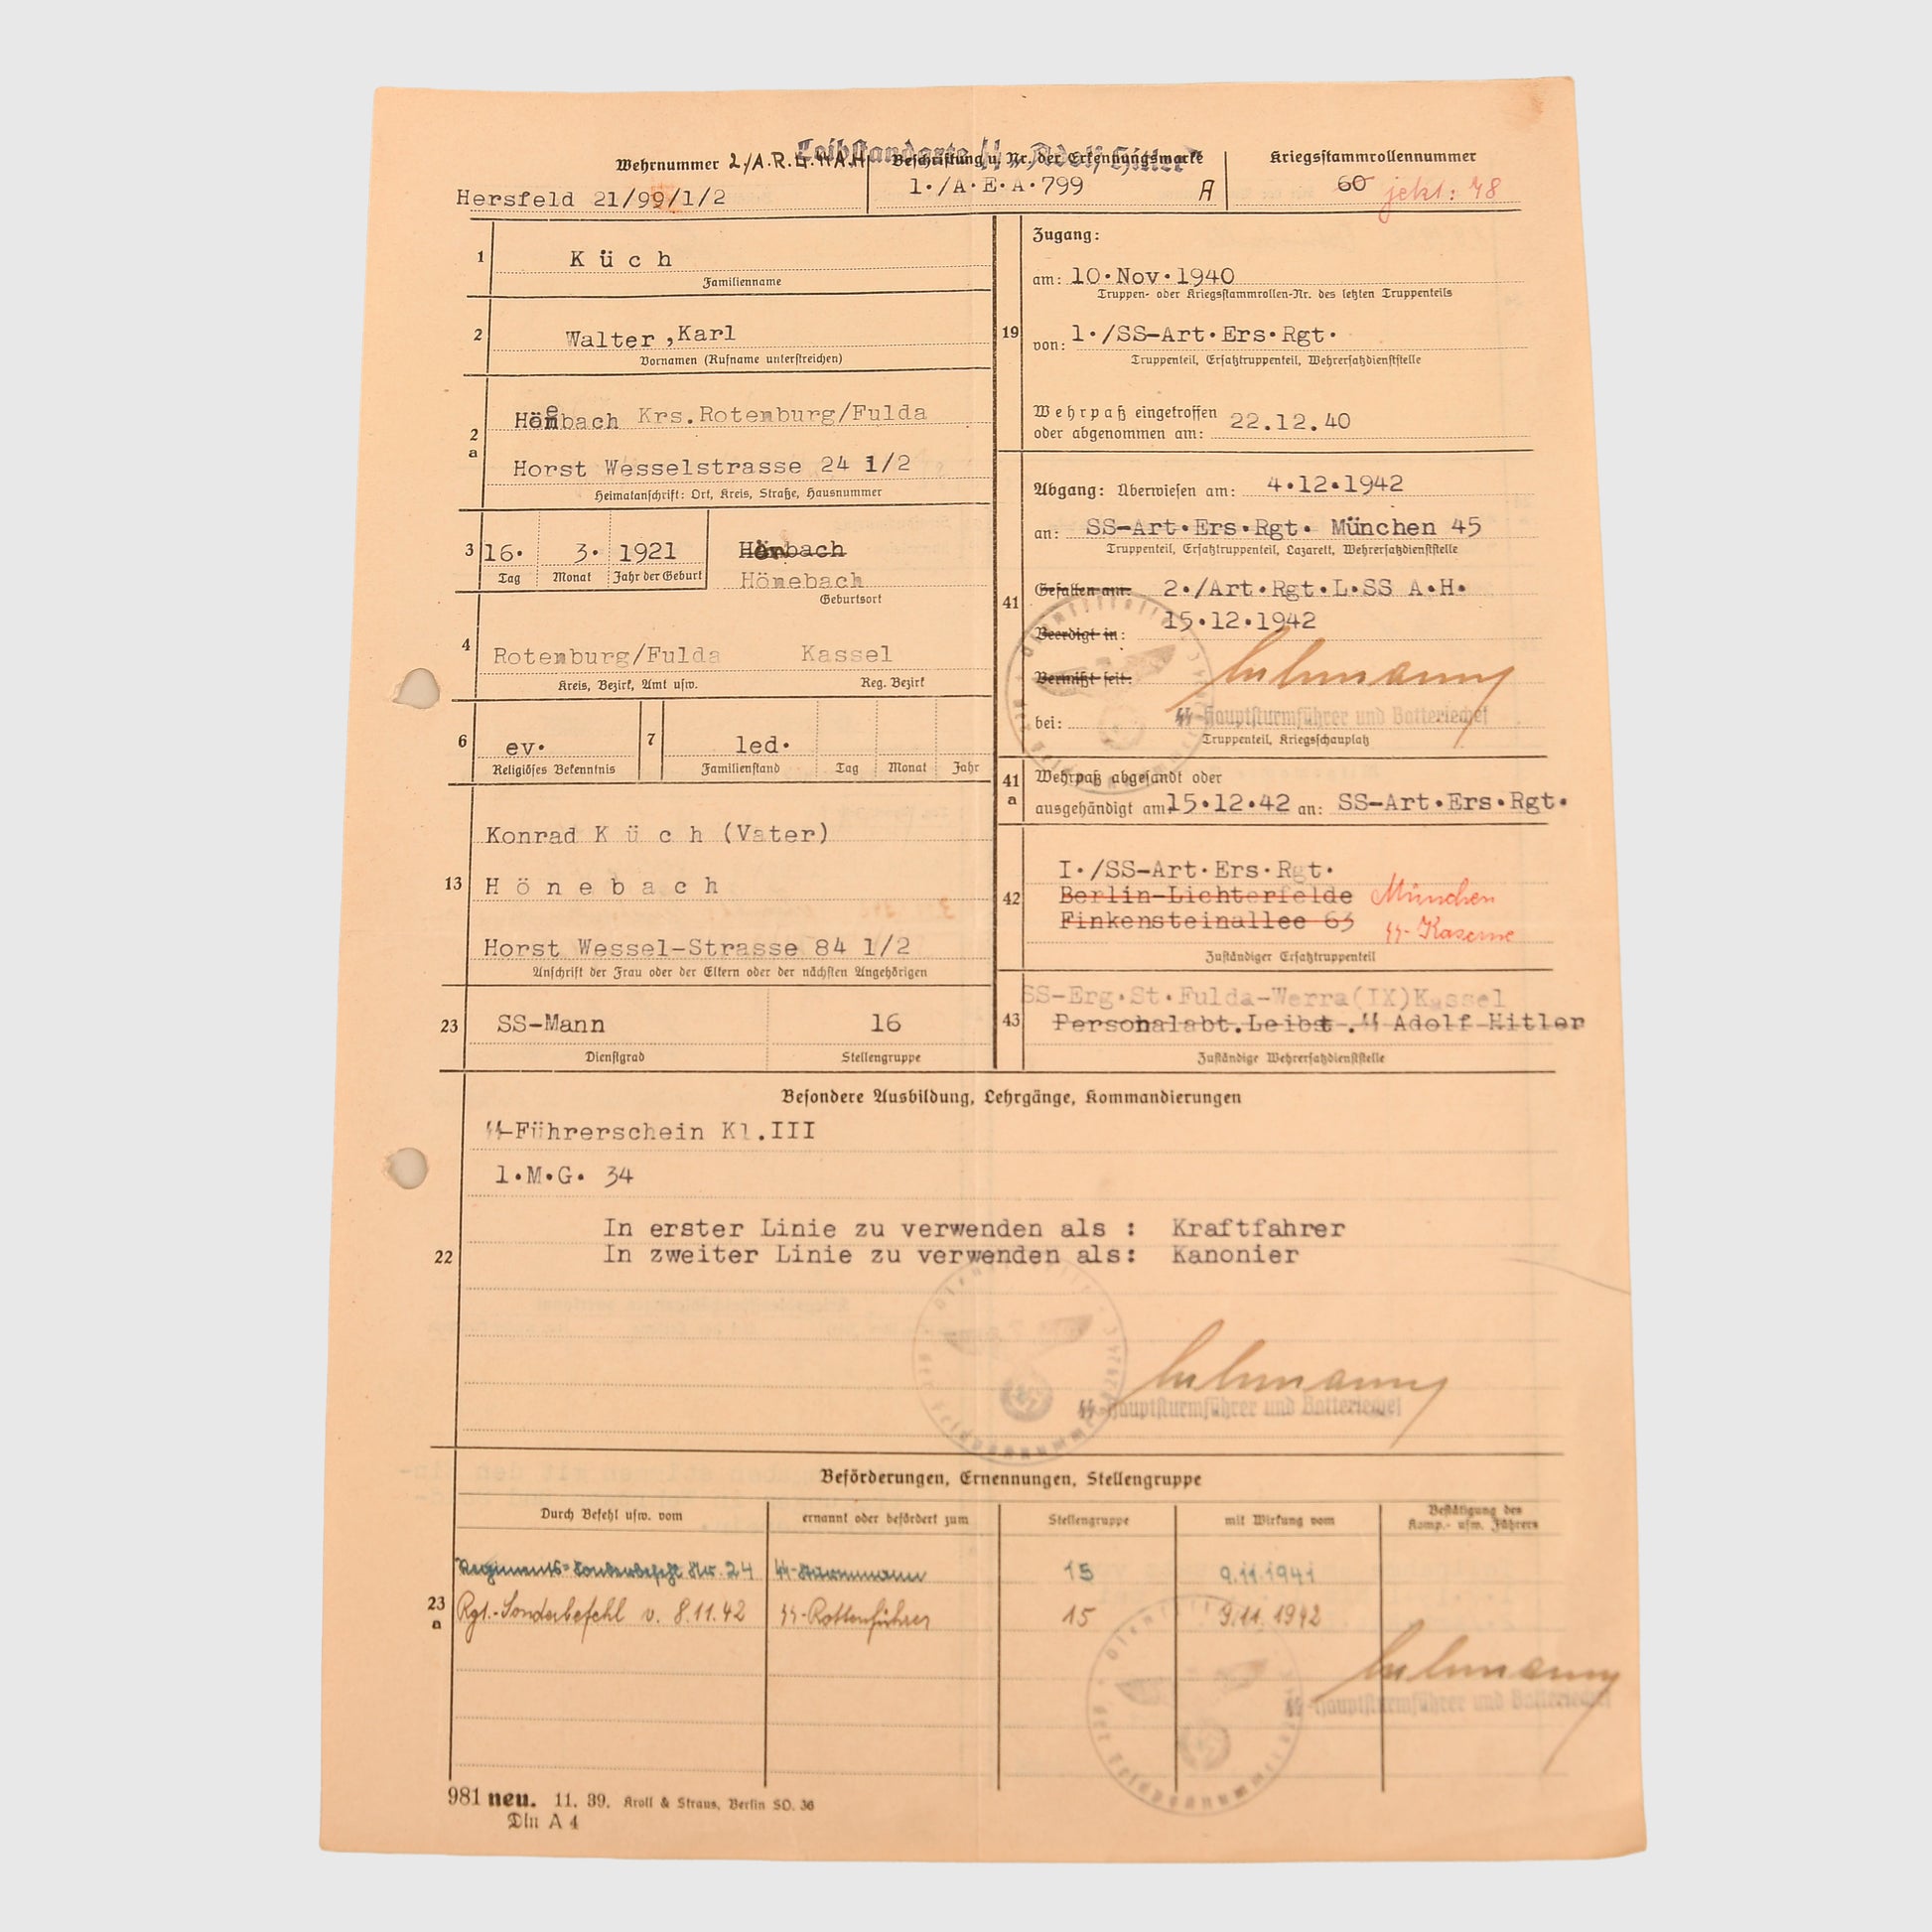 Leibstandarte SS „Adolf Hitler"
Wehrnummer 2./A.R.
Beschriftung u. Nr. der Erkennungsmarke
Kriegsstammrollennummer
Hersfeld 21/99/1/2
1./A.E.A.799 A
60 jetzt: 48
1
K ü c h
Familienname
2
Walter, Karl
Vornamen (Rufname unterstreichen)
2a
Hönebach Krs.Rotenburg/Fulda
Horst Wesselstrasse 24 1/2
Heimatanschrift: Ort, Kreis, Straße, Hausnummer
3
16. 3. 1921
Tag Monat Jahr der Geburt
Hönbach
Hönebach
Geburtsort
4
Rotenburg/Fulda Kassel
Kreis, Bezirk, Amt usw. Reg. Bezirk
6
ev.
Religiöses Bekenntnis
7
led.
Familienstand Tag Monat Jahr
13
Konrad K ü c h (Vater)
H ö n e b a c h
Horst Wessel-Strasse 84 1/2
Anschrift der Frau oder der Eltern oder der nächsten Angehörigen
23
SS-Mann 16
Dienstgrad Stellengruppe
19
Zugang:
am: 10.Nov.1940
Truppen- oder Kriegsstammrollen-Nr. des letzten Truppenteils
von: 1./SS-Art.Ers.Rgt.
Truppenteil, Ersatztruppenteil, Wehrersatzdienststelle
Wehrpaß eingetroffen
oder abgenommen am: 22.12.40
41
Abgang: Überwiesen am: 4.12.1942
an: SS-Art.Ers.Rgt. München 45
Truppenteil, Ersatztruppenteil, Lazarett, Wehrersatzdienststelle
Gefallen am: 2./Art.Rgt.L.SS A.H.
15.12.1942
Beerdigt in:
Vermißt seit:
bei: SS-Hauptsturmführer und Batteriechef
Truppenteil, Kriegsschauplatz
41a
Wehrpaß abgesandt oder
ausgehändigt am 15.12.42 an: SS-Art.Ers.Rgt.
42
I./SS-Art.Ers.Rgt.
Berlin-Lichterfelde München
Finkensteinallee 63 SS-Kaserne
Zuständiger Ersatztruppenteil
43
SS-Erg.St.Fulda-Werra(IX)Kassel
Personalabt.Leibst.SS Adolf Hitler
Zuständige Wehrersatzdienststelle
22
Besondere Ausbildung, Lehrgänge, Kommandierungen
SS-Führerschein Kl.III
l.M.G. 34
In erster Linie zu verwenden als : Kraftfahrer
In zweiter Linie zu verwenden als: Kanonier
SS-Hauptsturmführer und Batteriechef
23a
Beförderungen, Ernennungen, Stellengruppe
Durch Befehl usw. vom
ernannt oder befördert zum
Stellengruppe
mit Wirkung vom
Bestätigung des
Komp.- usw. Führers
Regiments-Sonderbefehl Nr. 24 SS-Sturmmann 15 9.11.1941
Rgt.-Sonderbefehl v. 8.11.42 SS-Rottenführer 15 9.11.1942
SS-Hauptsturmführer und Batteriechef
981 neu. 11. 39. Kroll & Straus, Berlin SO. 36
Din A 4